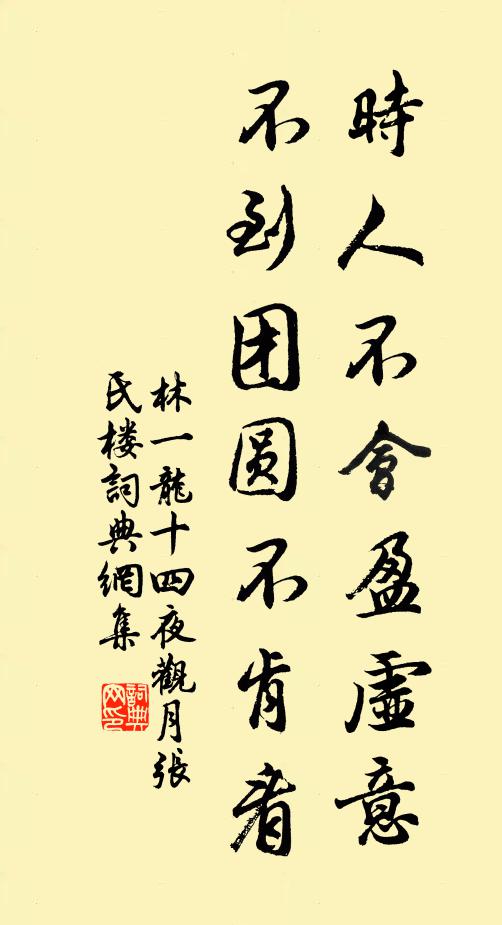 時人不會盈虛意
不到团圆不肯看
林一龍十四夜觀月張
氏楼詞典網集
詞典
网印